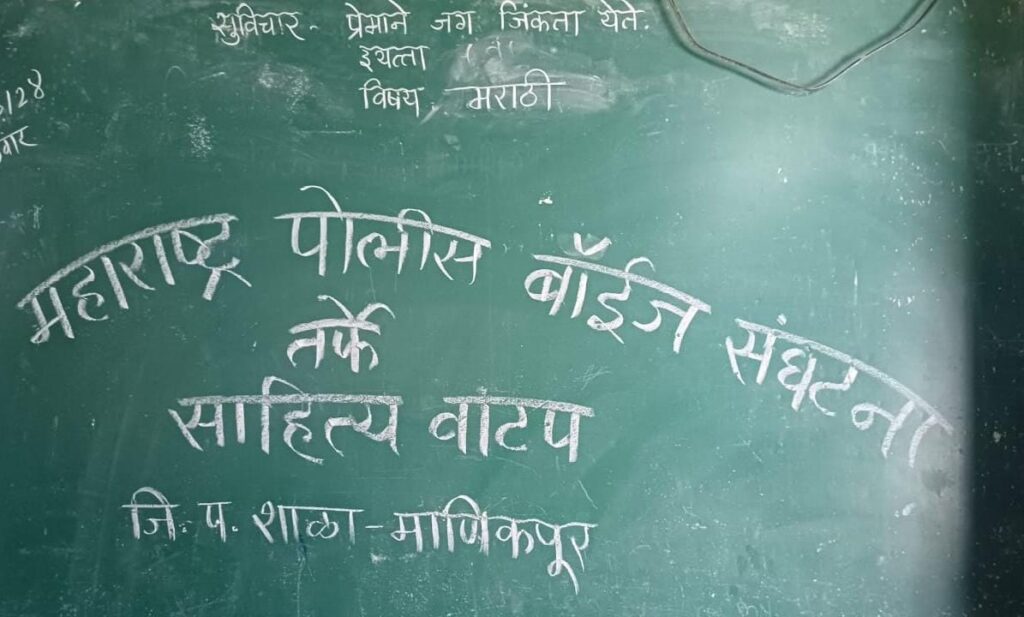 सुविचार - प्रेमाने जग जिंकता येते.
इयत्ता
विषय - मराठी
महाराष्ट्र पोलीस बॉईज संघटना
तर्फे
साहित्य वाटप
जि. प. शाळा - माणिकपूर